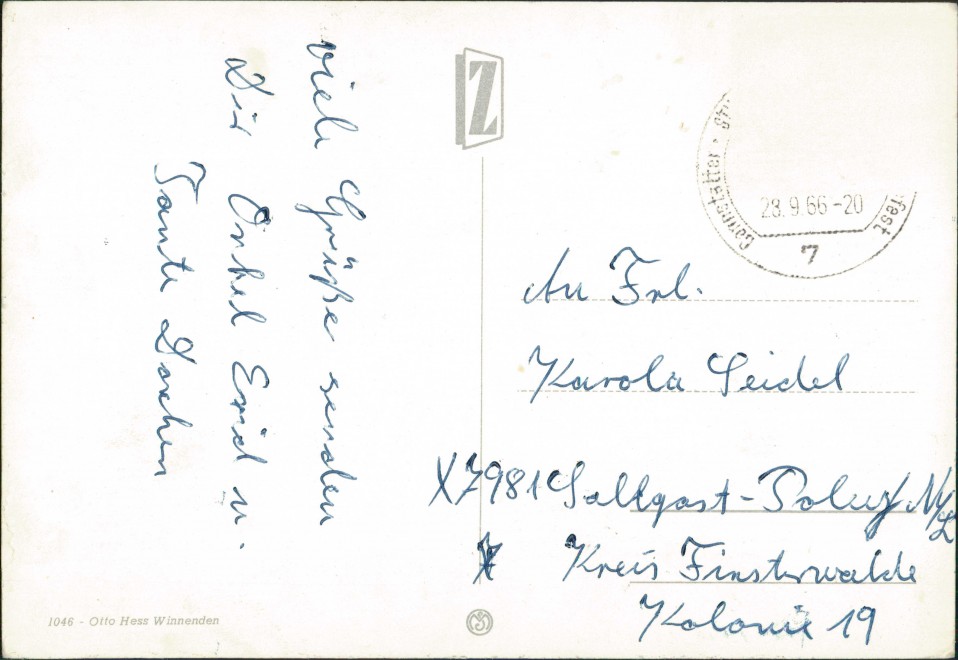 viele Grüße senden
Dir Onkel Erich u.
Tante Dorchen
Z
Cannstatter
28.9.66-20
7
An Frl.
Karola Seidel
X7981 Sallgast - N/L
Kreis Finsterwalde
Kolonie 19
1046 - Otto Hess Winnenden